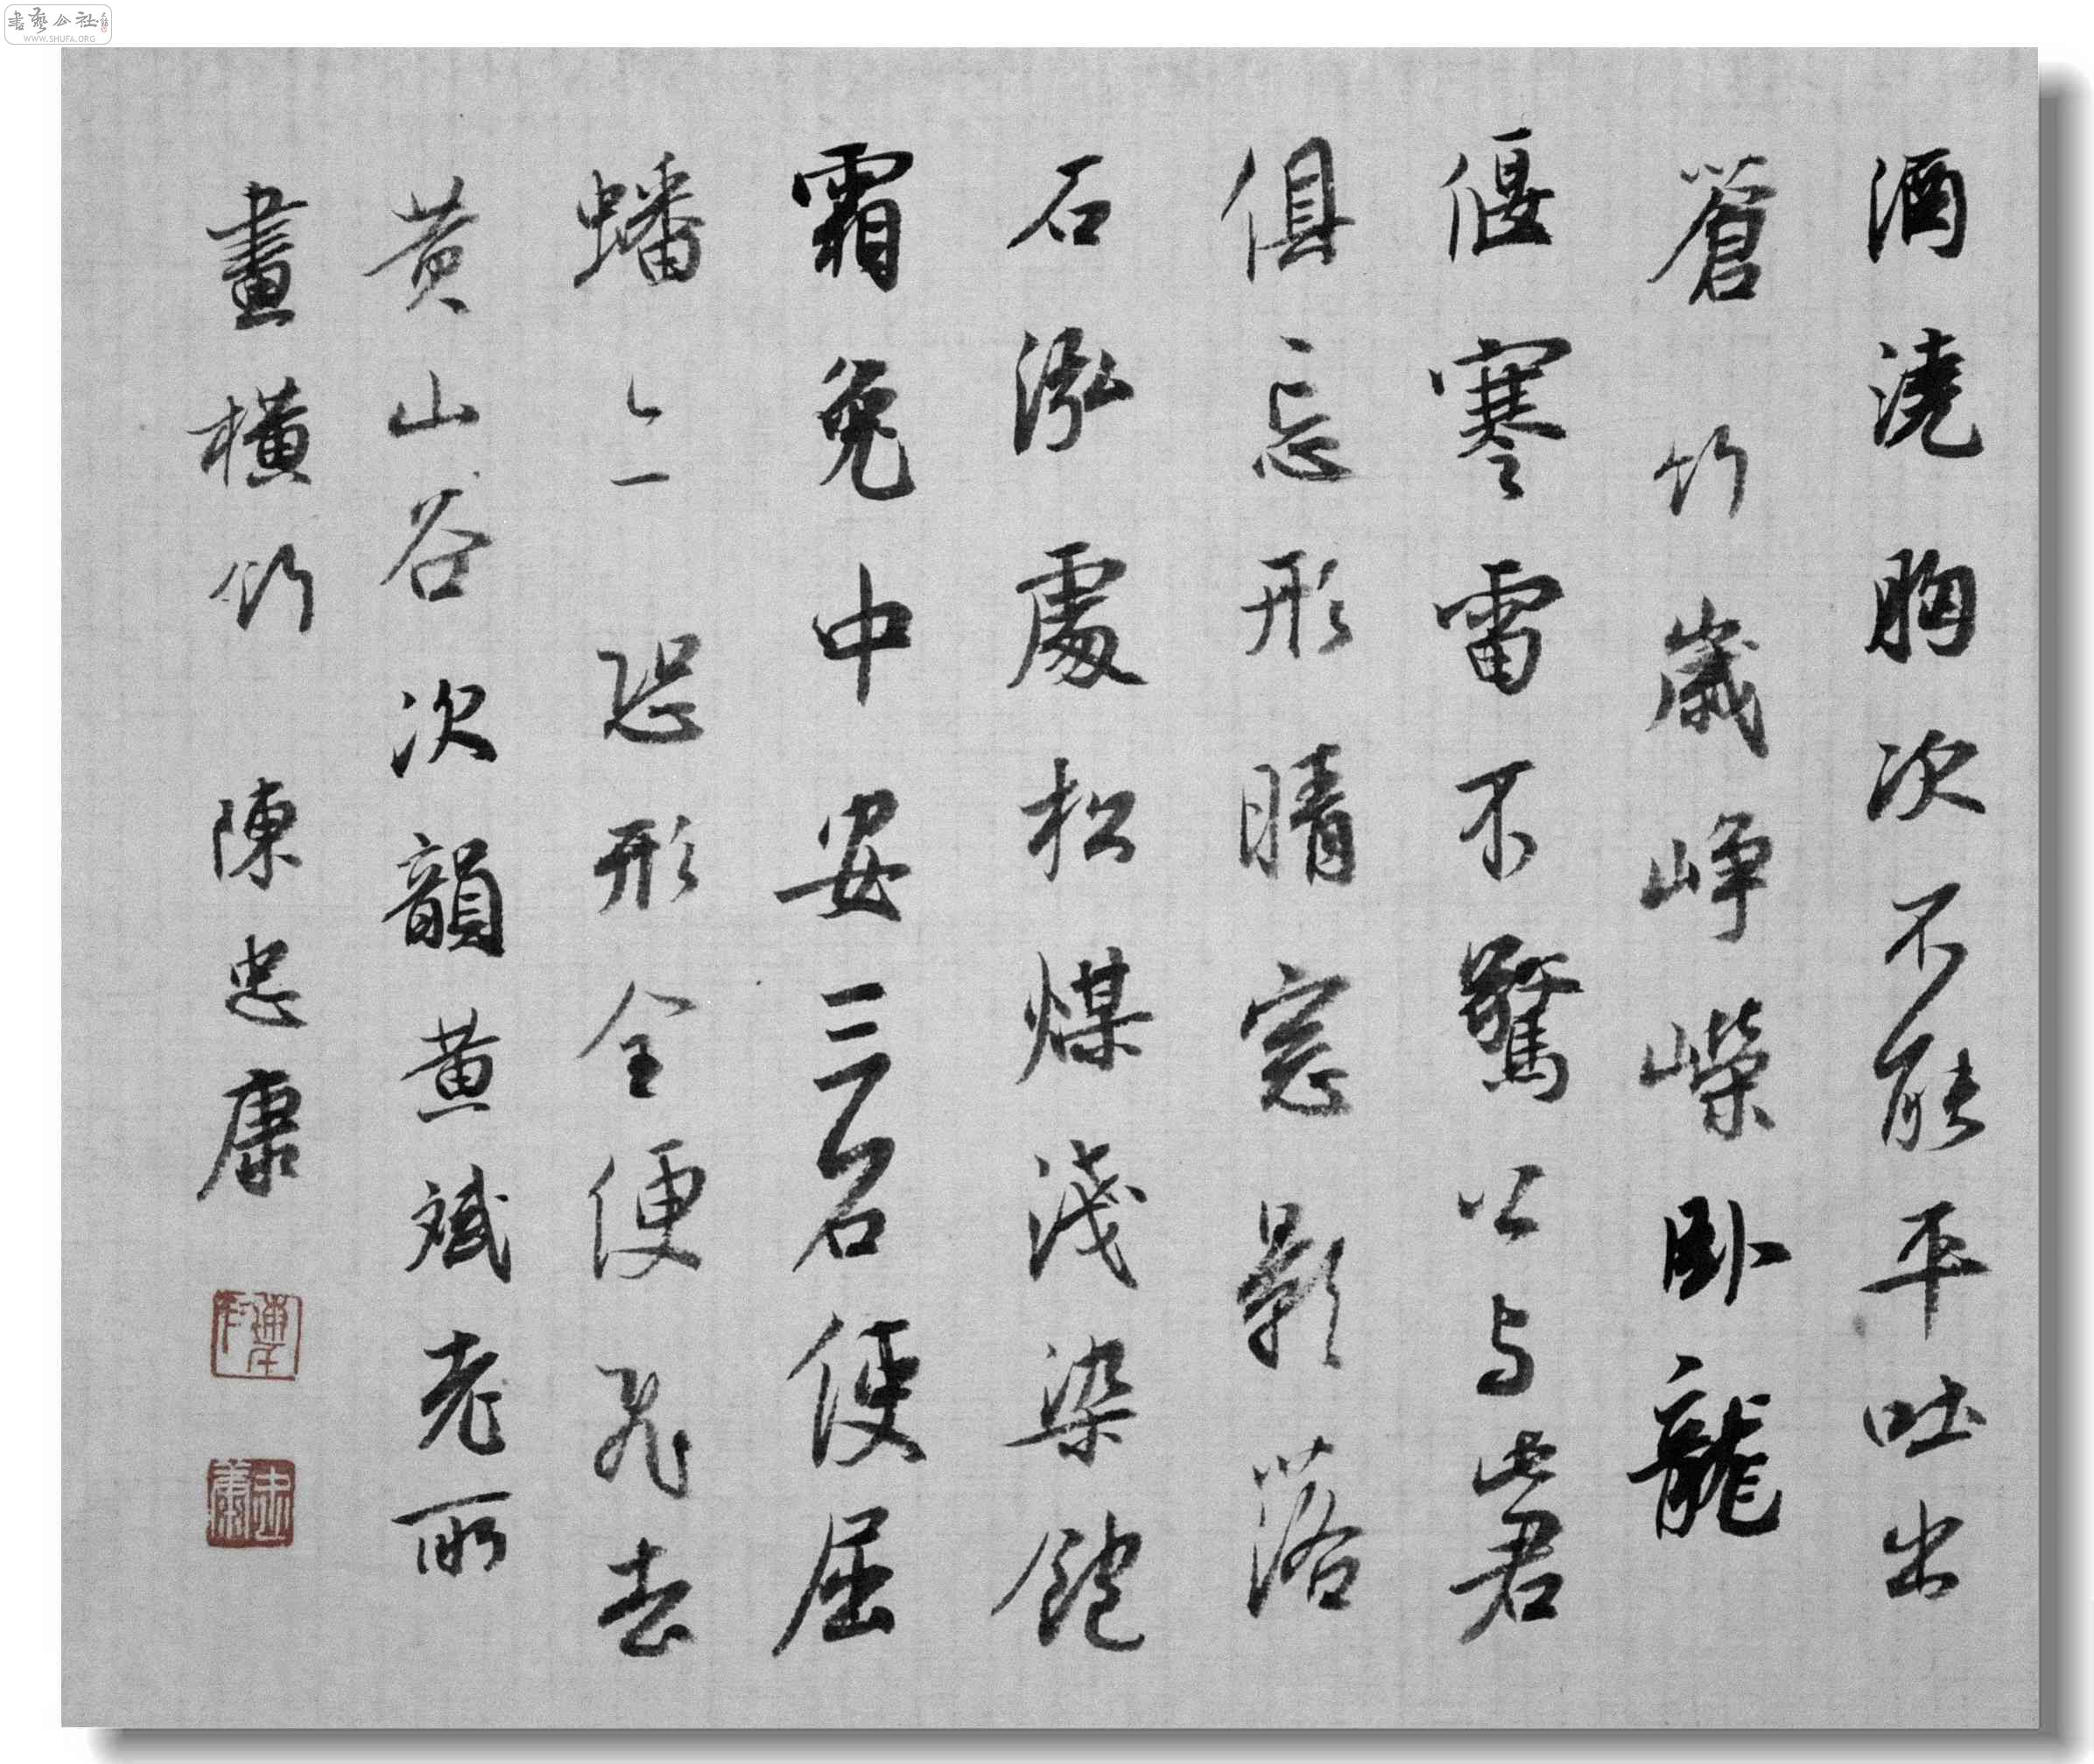 酒澆胸次不能平吐出
蒼竹歲崢嶸臥龍
偃蹇雷不驚公与此君
俱忘形晴窓影落
石泓處松煤淺染飽
霜兔中安三石使屈
蟠亦恐形全便飛去
黄山谷次韻黄斌老所
畫橫竹 陳忠康
書藝公社
WWW.SHUFA.ORG